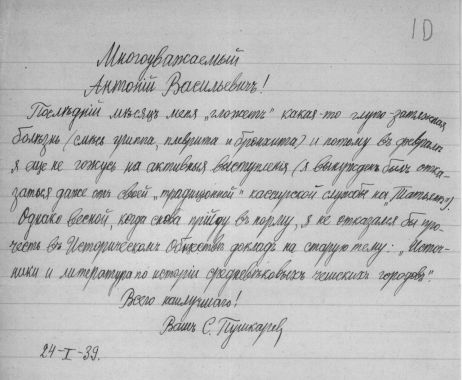 1D
Многоуважаемый
Антоній Васильевичъ!
Послѣдній мѣсяцъ меня „гложетъ“ какая-то глупо-затяжная
болѣзнь (смѣсь гриппа, плеврита и бронхита) и потому въ февралѣ
я еще не гожусь на активныя выступленія (я вынужденъ былъ отка-
заться даже отъ своей „традиціонной“ кассирской службы на „Татьянѣ“).
Однако весной, когда снова прійду въ норму, я не отказался бы про-
честь въ Историческомъ Обществѣ докладъ на старую тему: „Источ-
ники и литература по исторіи средневѣковыхъ чешскихъ городовъ“.
Всего наилучшаго!
Вашъ С. Пушкаревъ
24-I-39.